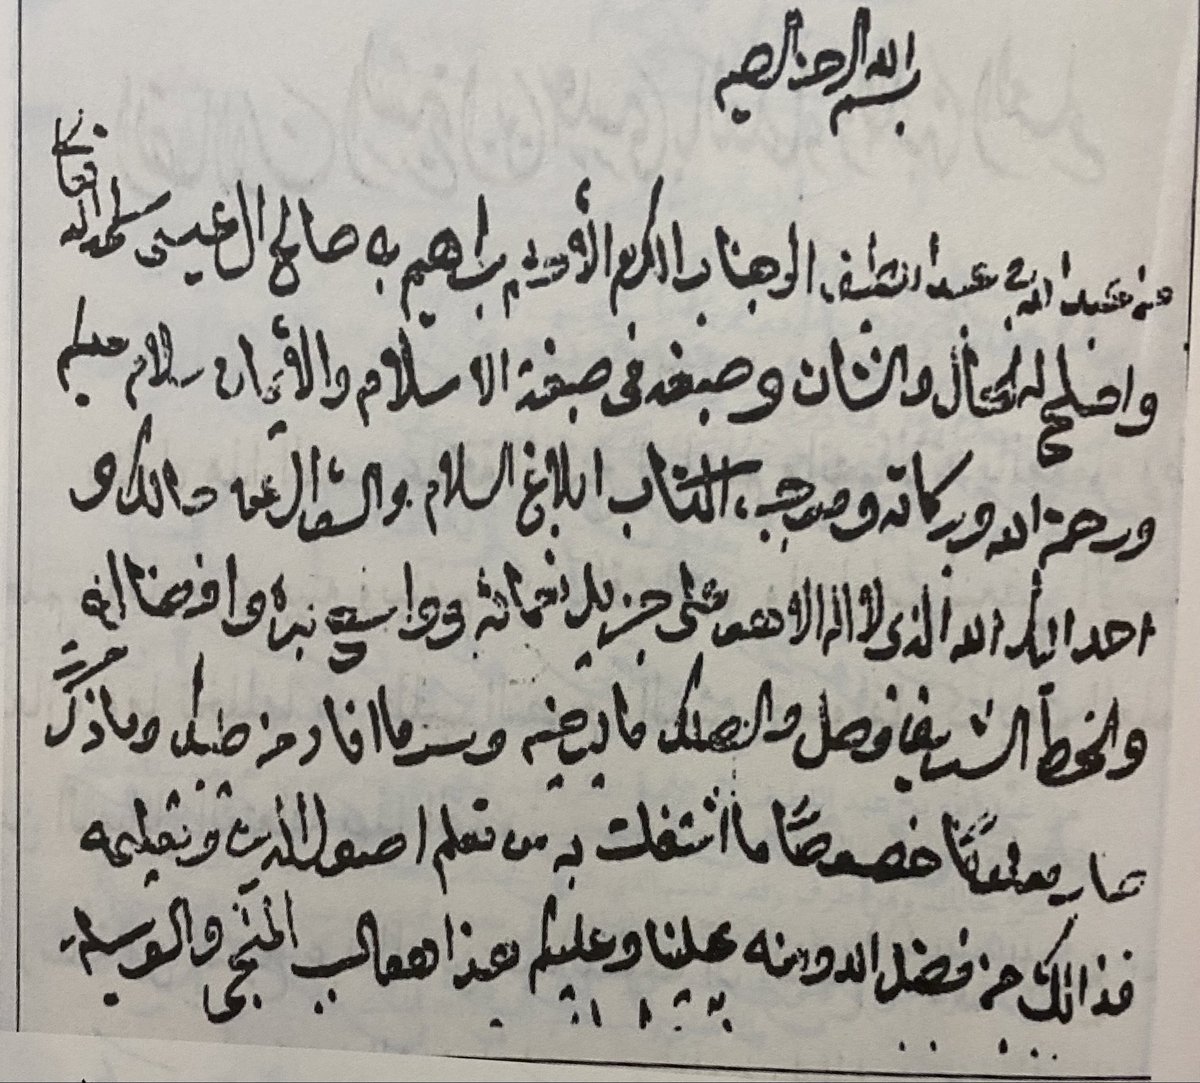 بسم الله الرحمن الرحيم
من عبد الله بن عبد اللطيف، الى جناب المكرم الأخ براهيم بن صالح ال عيسى سلمه الله تعالى
واصلح له الحال والشان وصبغه في صبغة الاسلام والأيمان سلام عليكم
ورحمة الله وبركاته وموجب، الكتاب ابلاغ السلام والسؤال عن حالك و
احمد اليك الله الذي لا اله الا هو على جزيل نعمائه وواسع بره
والخط الشريف وصل وسر ما افاد من طيبك وما ذكرت
صار معلوما خصوصًا ما اشتغلت به من تعلم اصول الدين وتعليمه
فذالك من فضل الله ومنه علينا وعليكم